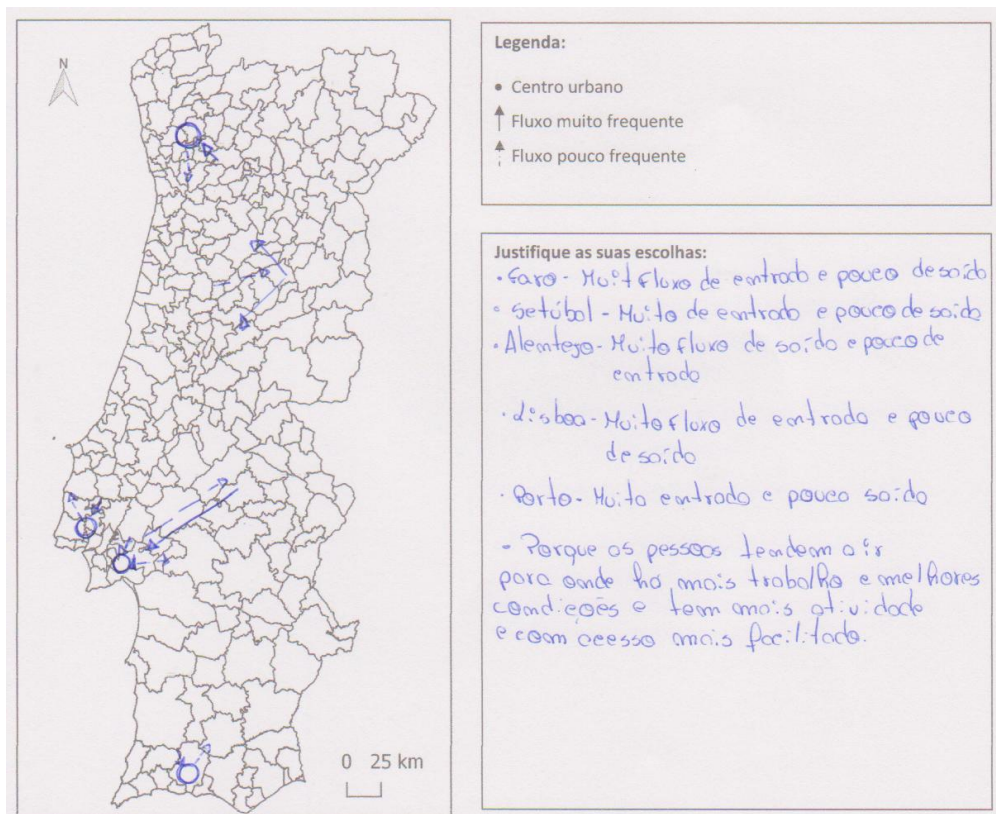 N
0 25 km
Legenda:
• Centro urbano
Fluxo muito frequente
Fluxo pouco frequente
Justifique as suas escolhas:
• Faro - Muit fluxo de entrado e pouco de saído
• Setúbal - Muito de entrado e pouco de saído
• Alentejo - Muito fluxo de saído e pouco de
entrado
• Lisboa - Muito fluxo de entrado e pouco
de saído
• Porto - Muito entrado e pouco saído
- Porque as pessoas tendem a ir
para onde há mais trabalho e melhores
condições e tem mais atividade
e com acesso mais facilitado.